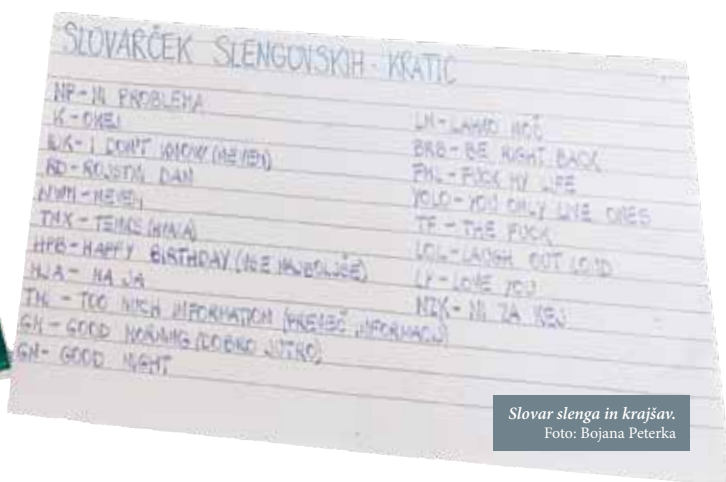 SLOVARČEK SLENGOVSKIH KRATIC
NP - NI PROBLEMA
K - OKEJ
IDK - I DON'T KNOW (NEVEM)
RD - ROJSTNI DAN
NVM - NEVEM
TNX - TENKS (HVALA)
HPB - HAPPY BIRTHDAY (VSE NAJBOLJŠE)
NJA - NA JA
TMI - TOO MICH INFORMATION (PREVEČ INFORMACIJ)
GM - GOOD MORNING (DOBRO JUTRO)
GN - GOOD NIGHT
LN - LAHKO NOČ
BRB - BE RIGHT BACK
FML - FUCK MY LIFE
YOLO - YOU ONLY LIVE ONES
TF - THE FUCK
LOL - LAUGH OUT LOUD
LY - LOVE YOU
NZK - NI ZA KEJ
Slovar slenga in krajšav.
Foto: Bojana Peterka